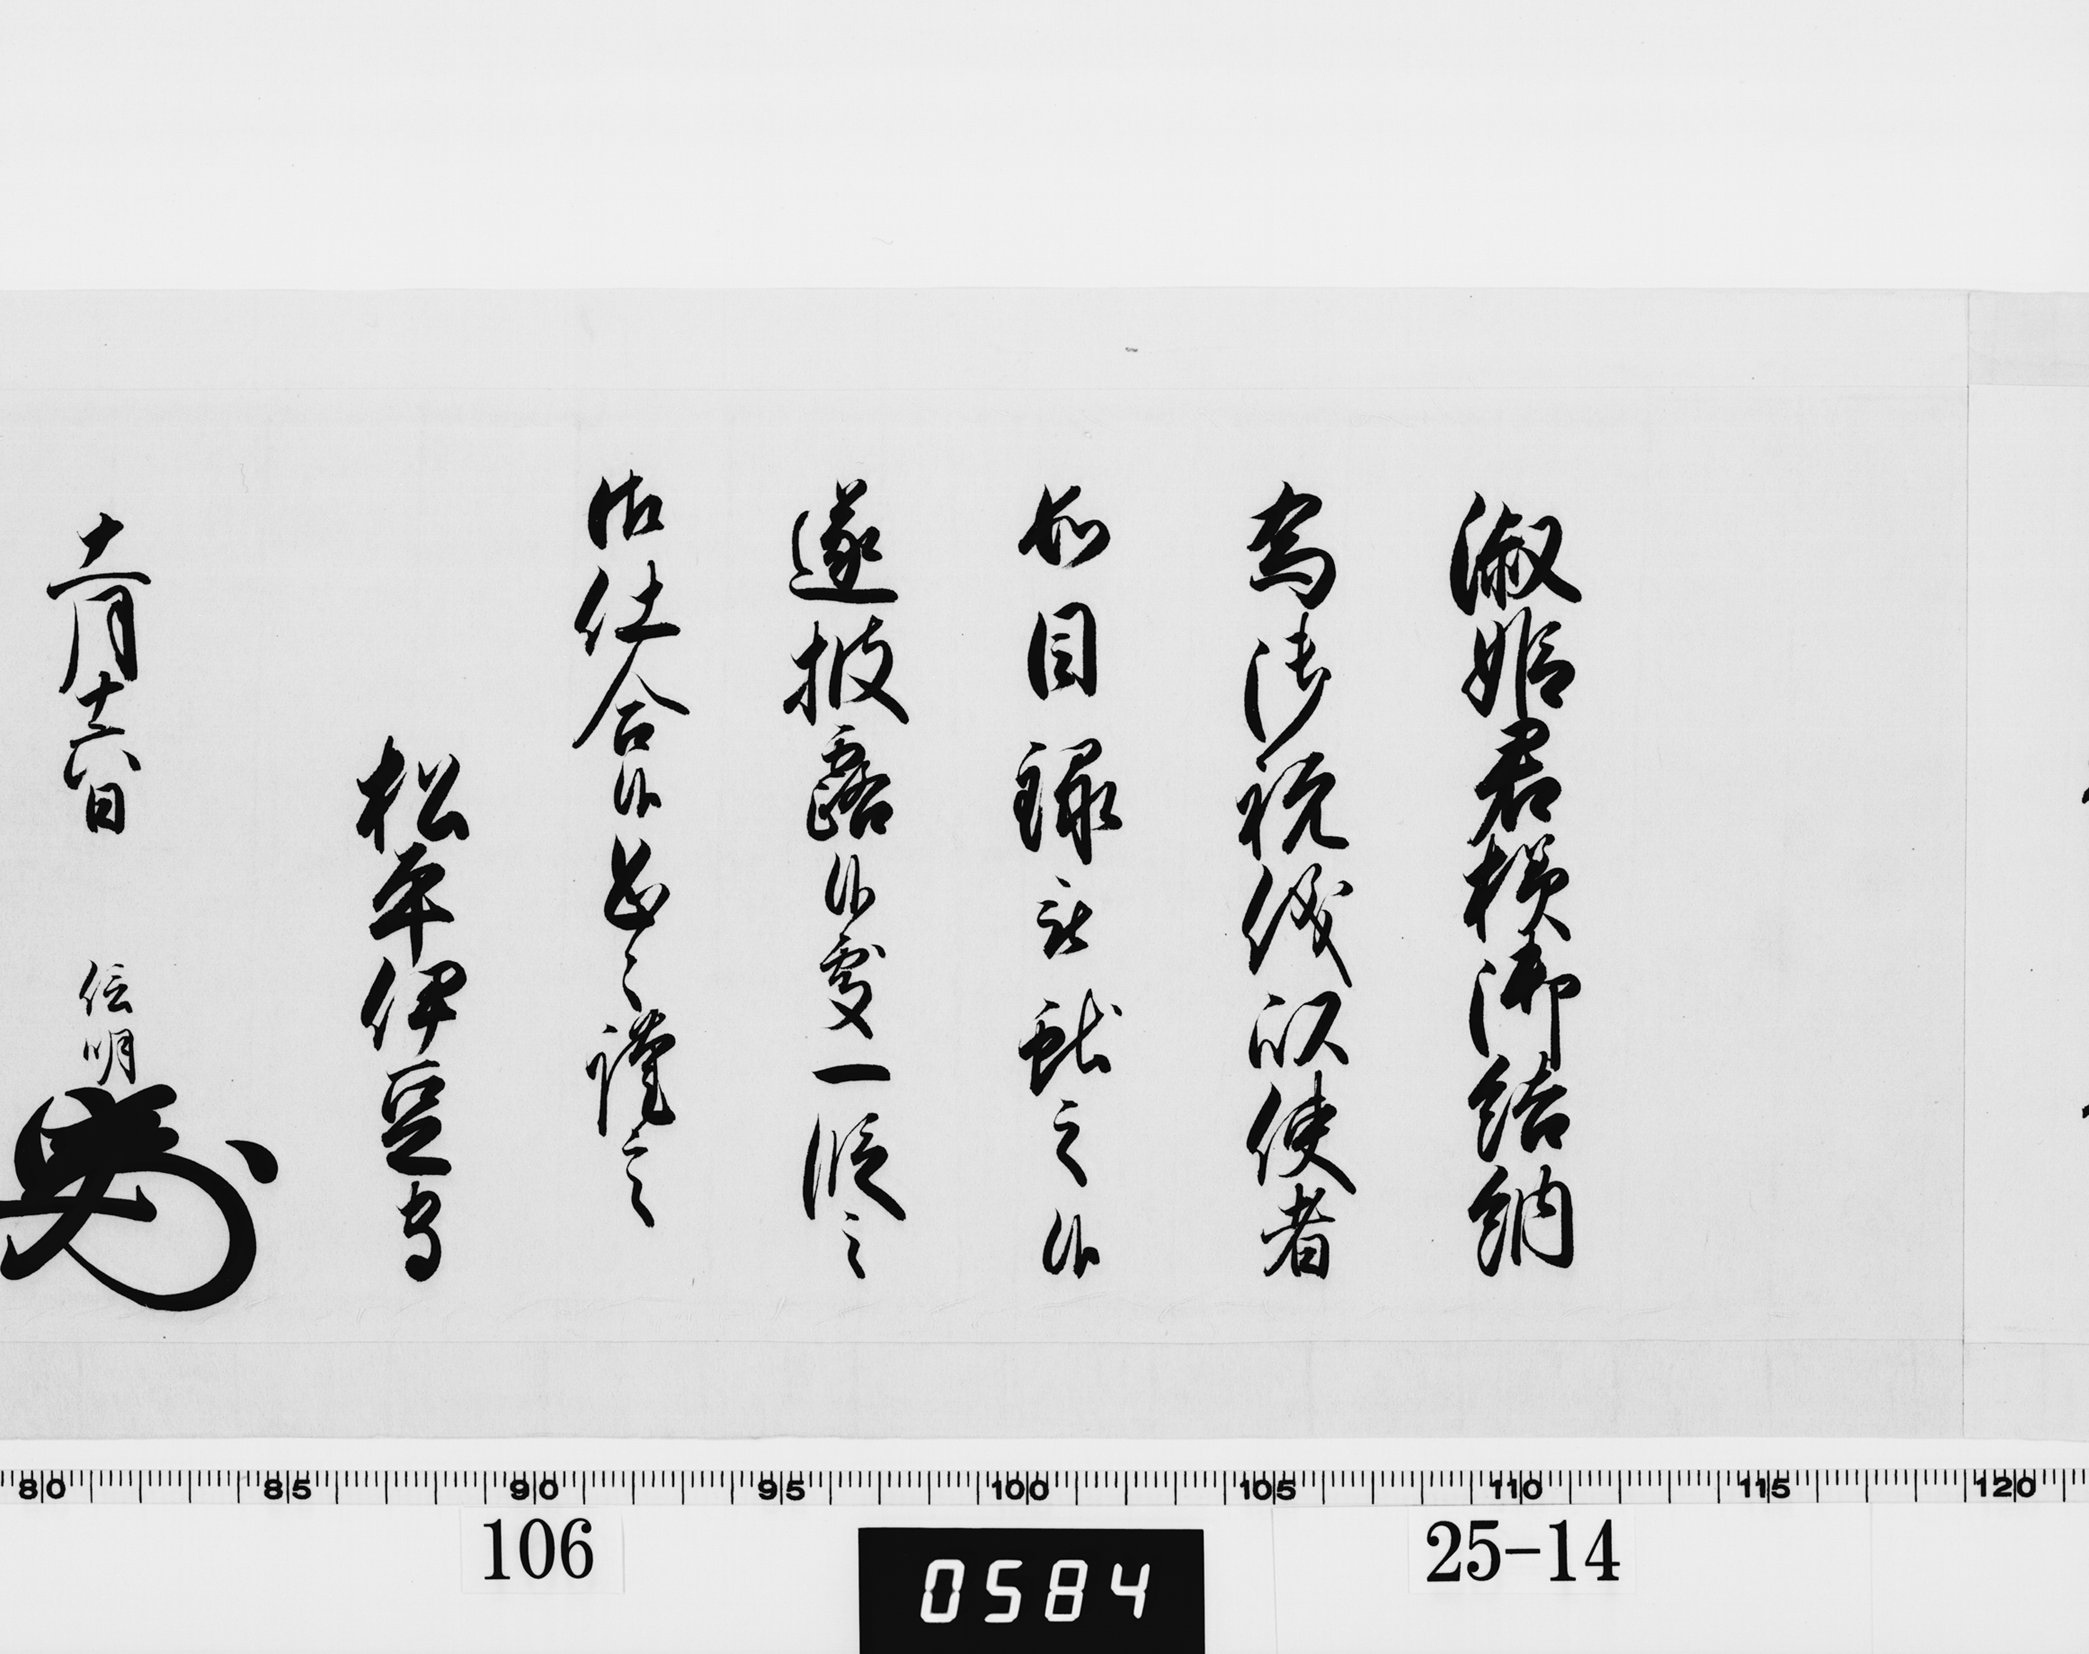 淑姫君様御結納
為御祝儀以使者
如目録被献之候
遂披露候處一段之
御仕合候恐々謹言
松平伊豆守
十一月十六日 信明
80 85 90 95 100 105 110 115 120
106 0584 25-14